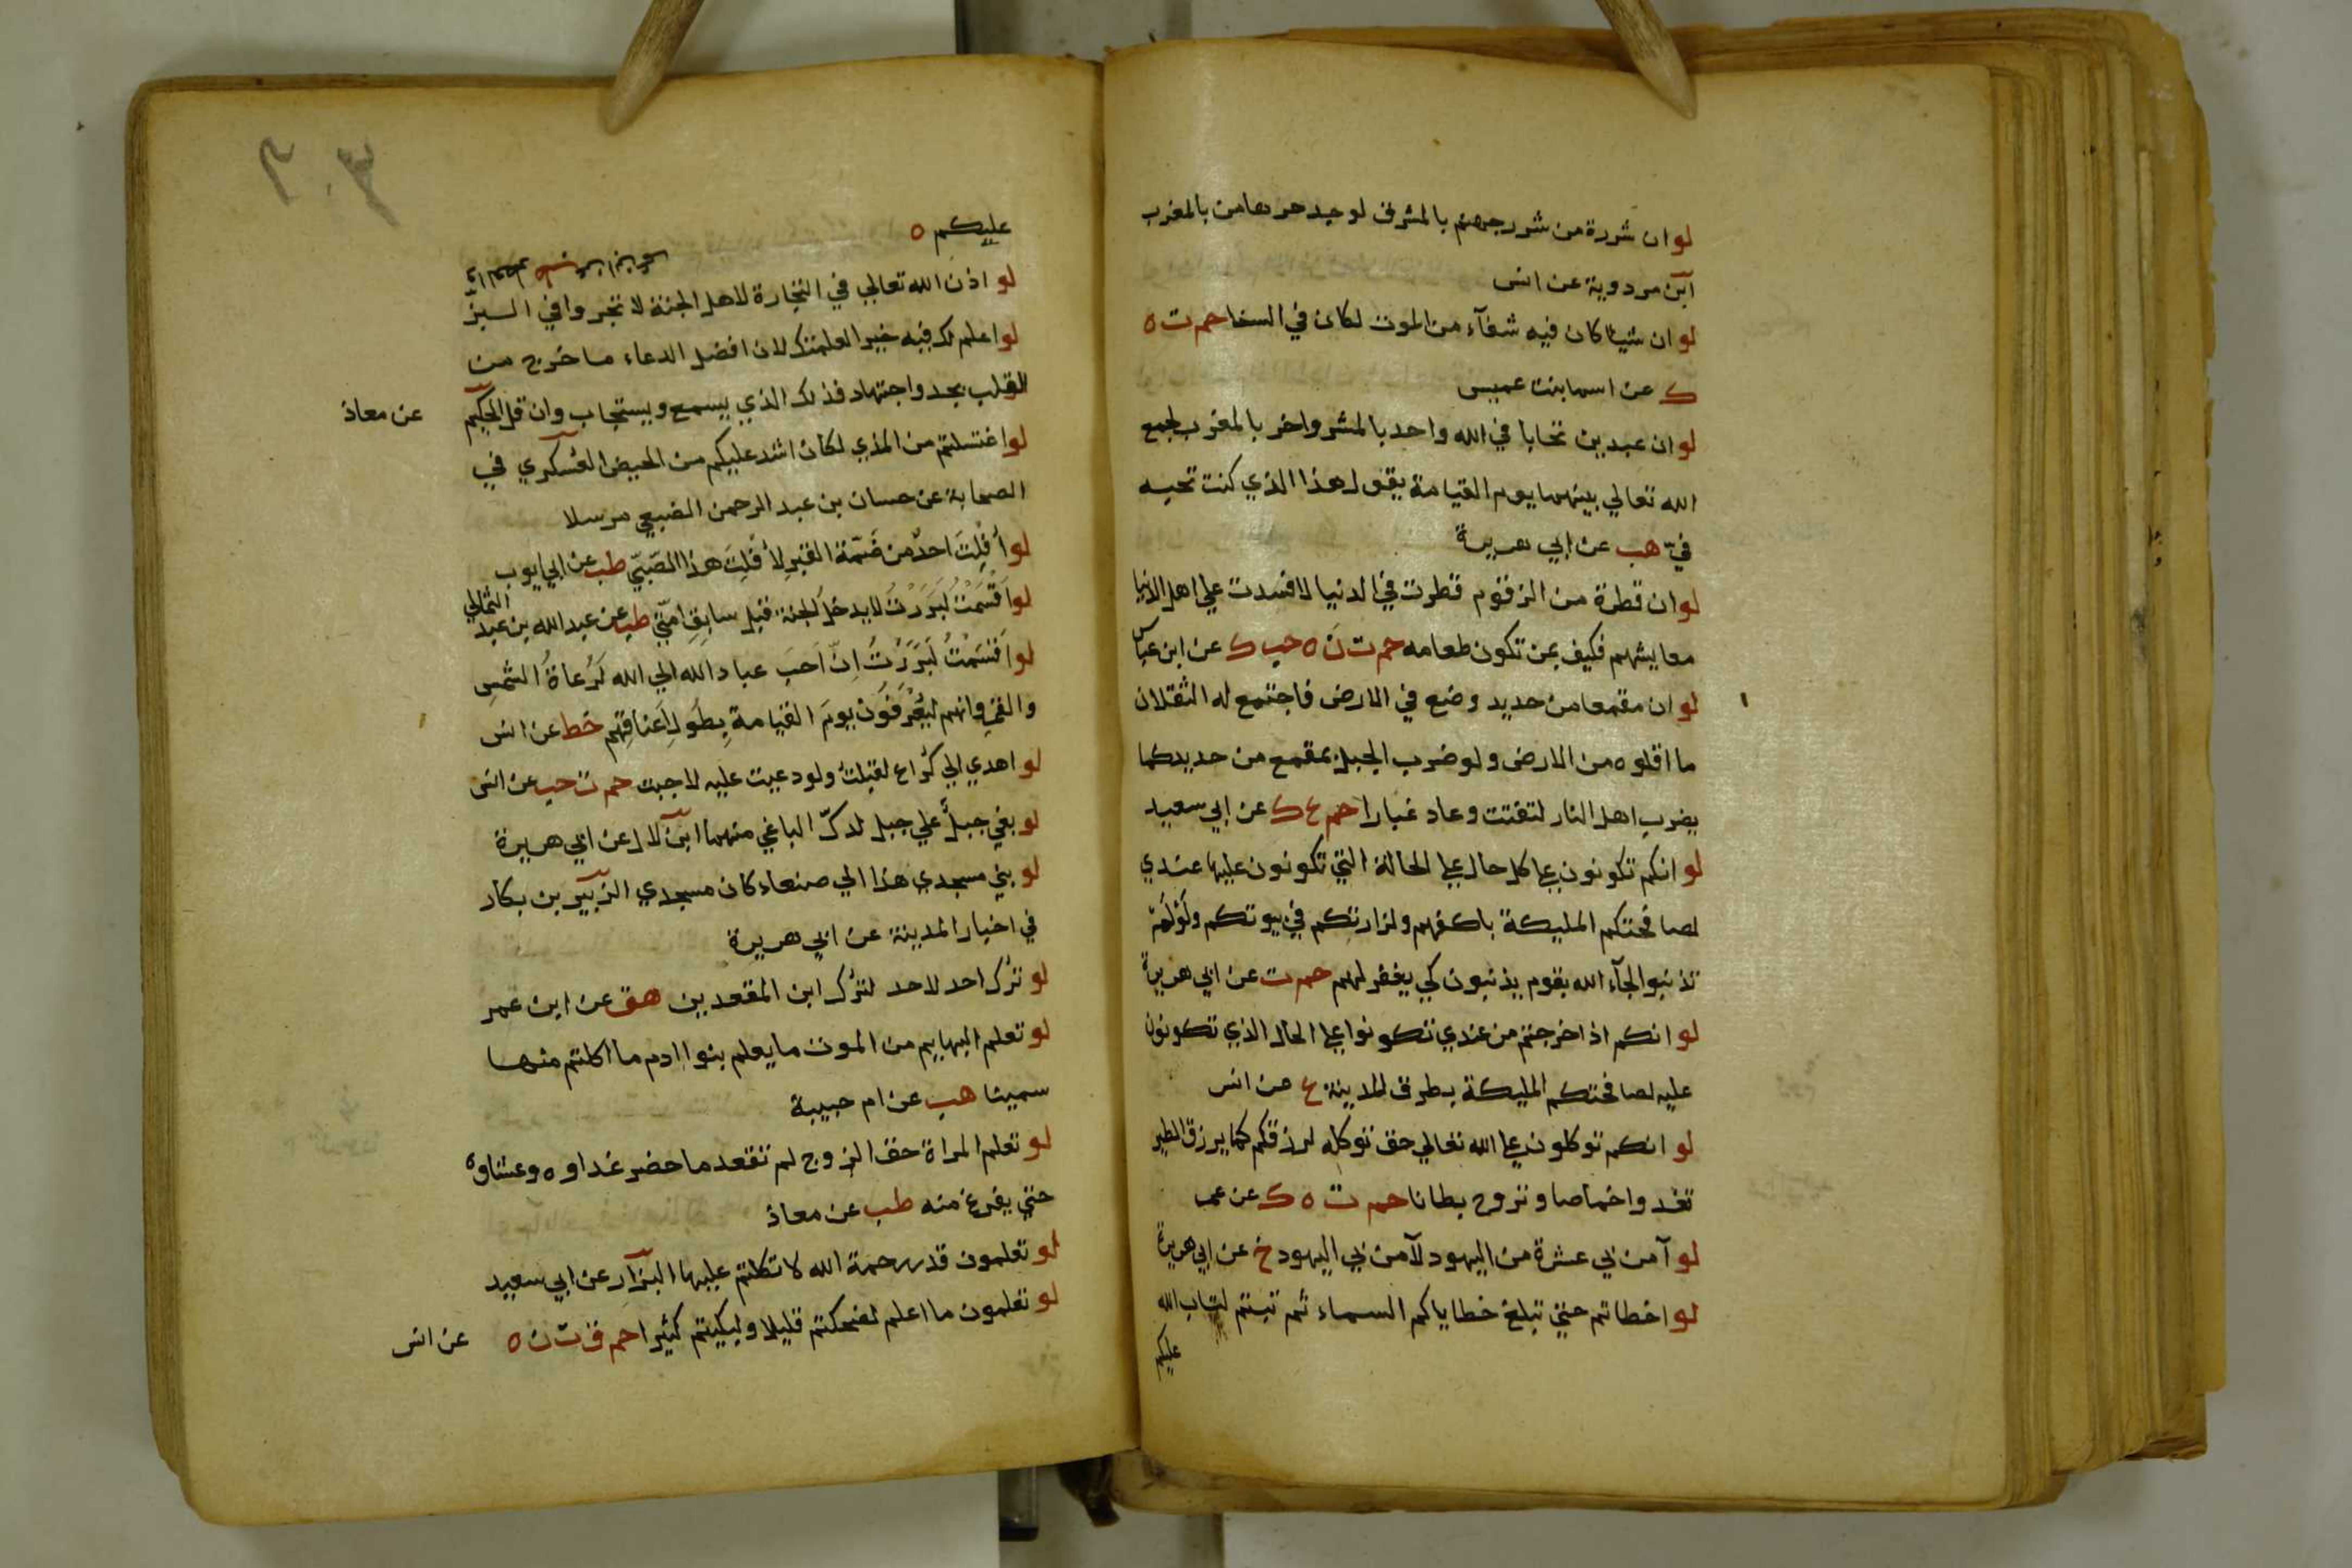 لو ان شررة من شرر جهنم بالمشرق لوجد حرها من بالمغرب
ابن مردوية عن انس
لو ان شيئا كان فيه شفآء من الموت لكان في السنا حم ت ه
ك عن اسما بنت عميس
لو ان عبدين تحابا في الله واحد بالمشر واخر بالمغرب لجمع
الله تعالي بينهما يوم القيامة يقول هذا الذي كنت تحبه
في هب عن ابي هريرة
لو ان قطرة من الزقوم قطرت في الدنيا لافسدت علي اهل الدنيا
معايشهم فكيف بمن تكون طعامه حم ت ن ه حب ك عن ابن عباس
لو ان مقمعا من حديد وضع في الارض فاجتمع له الثقلان
ما اقلوه من الارض ولو ضرب الجبل بمقمع من حديد كما
يضرب اهل النار لتفتت وعاد غبارا حم ع ك عن ابي سعيد
لو انكم تكونون علي كل حال علي الحالة التي تكونون عليها عندي
لصافحتكم المليكة باكفهم ولزارتكم في بيوتكم ولو لم
تذنبوا لجآء الله بقوم يذنبون كي يغفر لهم حم ت عن ابي هريرة
لو انكم اذا خرجتم من عندي تكونوا علي الحال الذي تكونون
عليه لصافحتكم المليكة بطرق المدينة ع عن انس
لو انكم توكلون علي الله تعالي حق توكله لرزقكم كما يرزق الطير
تغدوا خماصا وتروح بطانا حم ت ه ك عن عمر
لو آمن بي عشرة من اليهود لآمن بي اليهود خ عن ابي هريرة
لو اخطاتم حتي تبلغ خطاياكم السماء ثم تبتم لتاب الله
عليكم
عليكم ه
لو اذن الله تعالي في التجارة لاهل الجنة لاتجروا في البز
لو اعلم لك فيه خيرا لعلمتك لان افضل الدعاء ما خرج من
القلب بجد واجتهاد فذلك الذي يسمع ويستجاب وان قل الحكيم عن معاذ
لو اغتسلتم من المذي لكان اشد عليكم من الحيض العسكري في
الصحابة عن حسان بن عبد الرحمن الضبعي مرسلا
لو أفلت احد من ضمة القبر لأفلت هذا الصبي طب عن ابي ايوب
لو اقسمت لبررت لا يدخل الجنة قبل سابق امتي طب عن عبد الله بن عبد الثمالي
لو اقسمت لبررت ان احب عباد الله الي الله لرعاة الشمس
والقمر وانهم ليعرفون يوم القيامة بطول اعناقهم خط عن انس
لو اهدي الي كراع لقبلت ولو دعيت عليه لاجبت حم ت حب عن انس
لو بغي جبل علي جبل لدك الباغي منهما ابن لال عن ابي هريرة
لو بني مسجدي هذا الي صنعاء كان مسجدي الزبير بن بكار
في اخبار المدينة عن ابي هريرة
لو ترك احد لاحد لترك ابن المقعدين هق عن ابن عمر
لو تعلم البهايم من الموت ما يعلم بنوا ادم ما اكلتم منها
سمينا هب عن ام حبيبة
لو تعلم المراة حق الزوج لم تقعد ما حضر غداوه وعشاوه
حتي يفرغ منه طب عن معاذ
لو تعلمون قدر رحمة الله لاتكلتم عليها البزار عن ابي سعيد
لو تعلمون ما اعلم لضحكتم قليلا ولبكيتم كثيرا حم ق ت ن ه عن انس